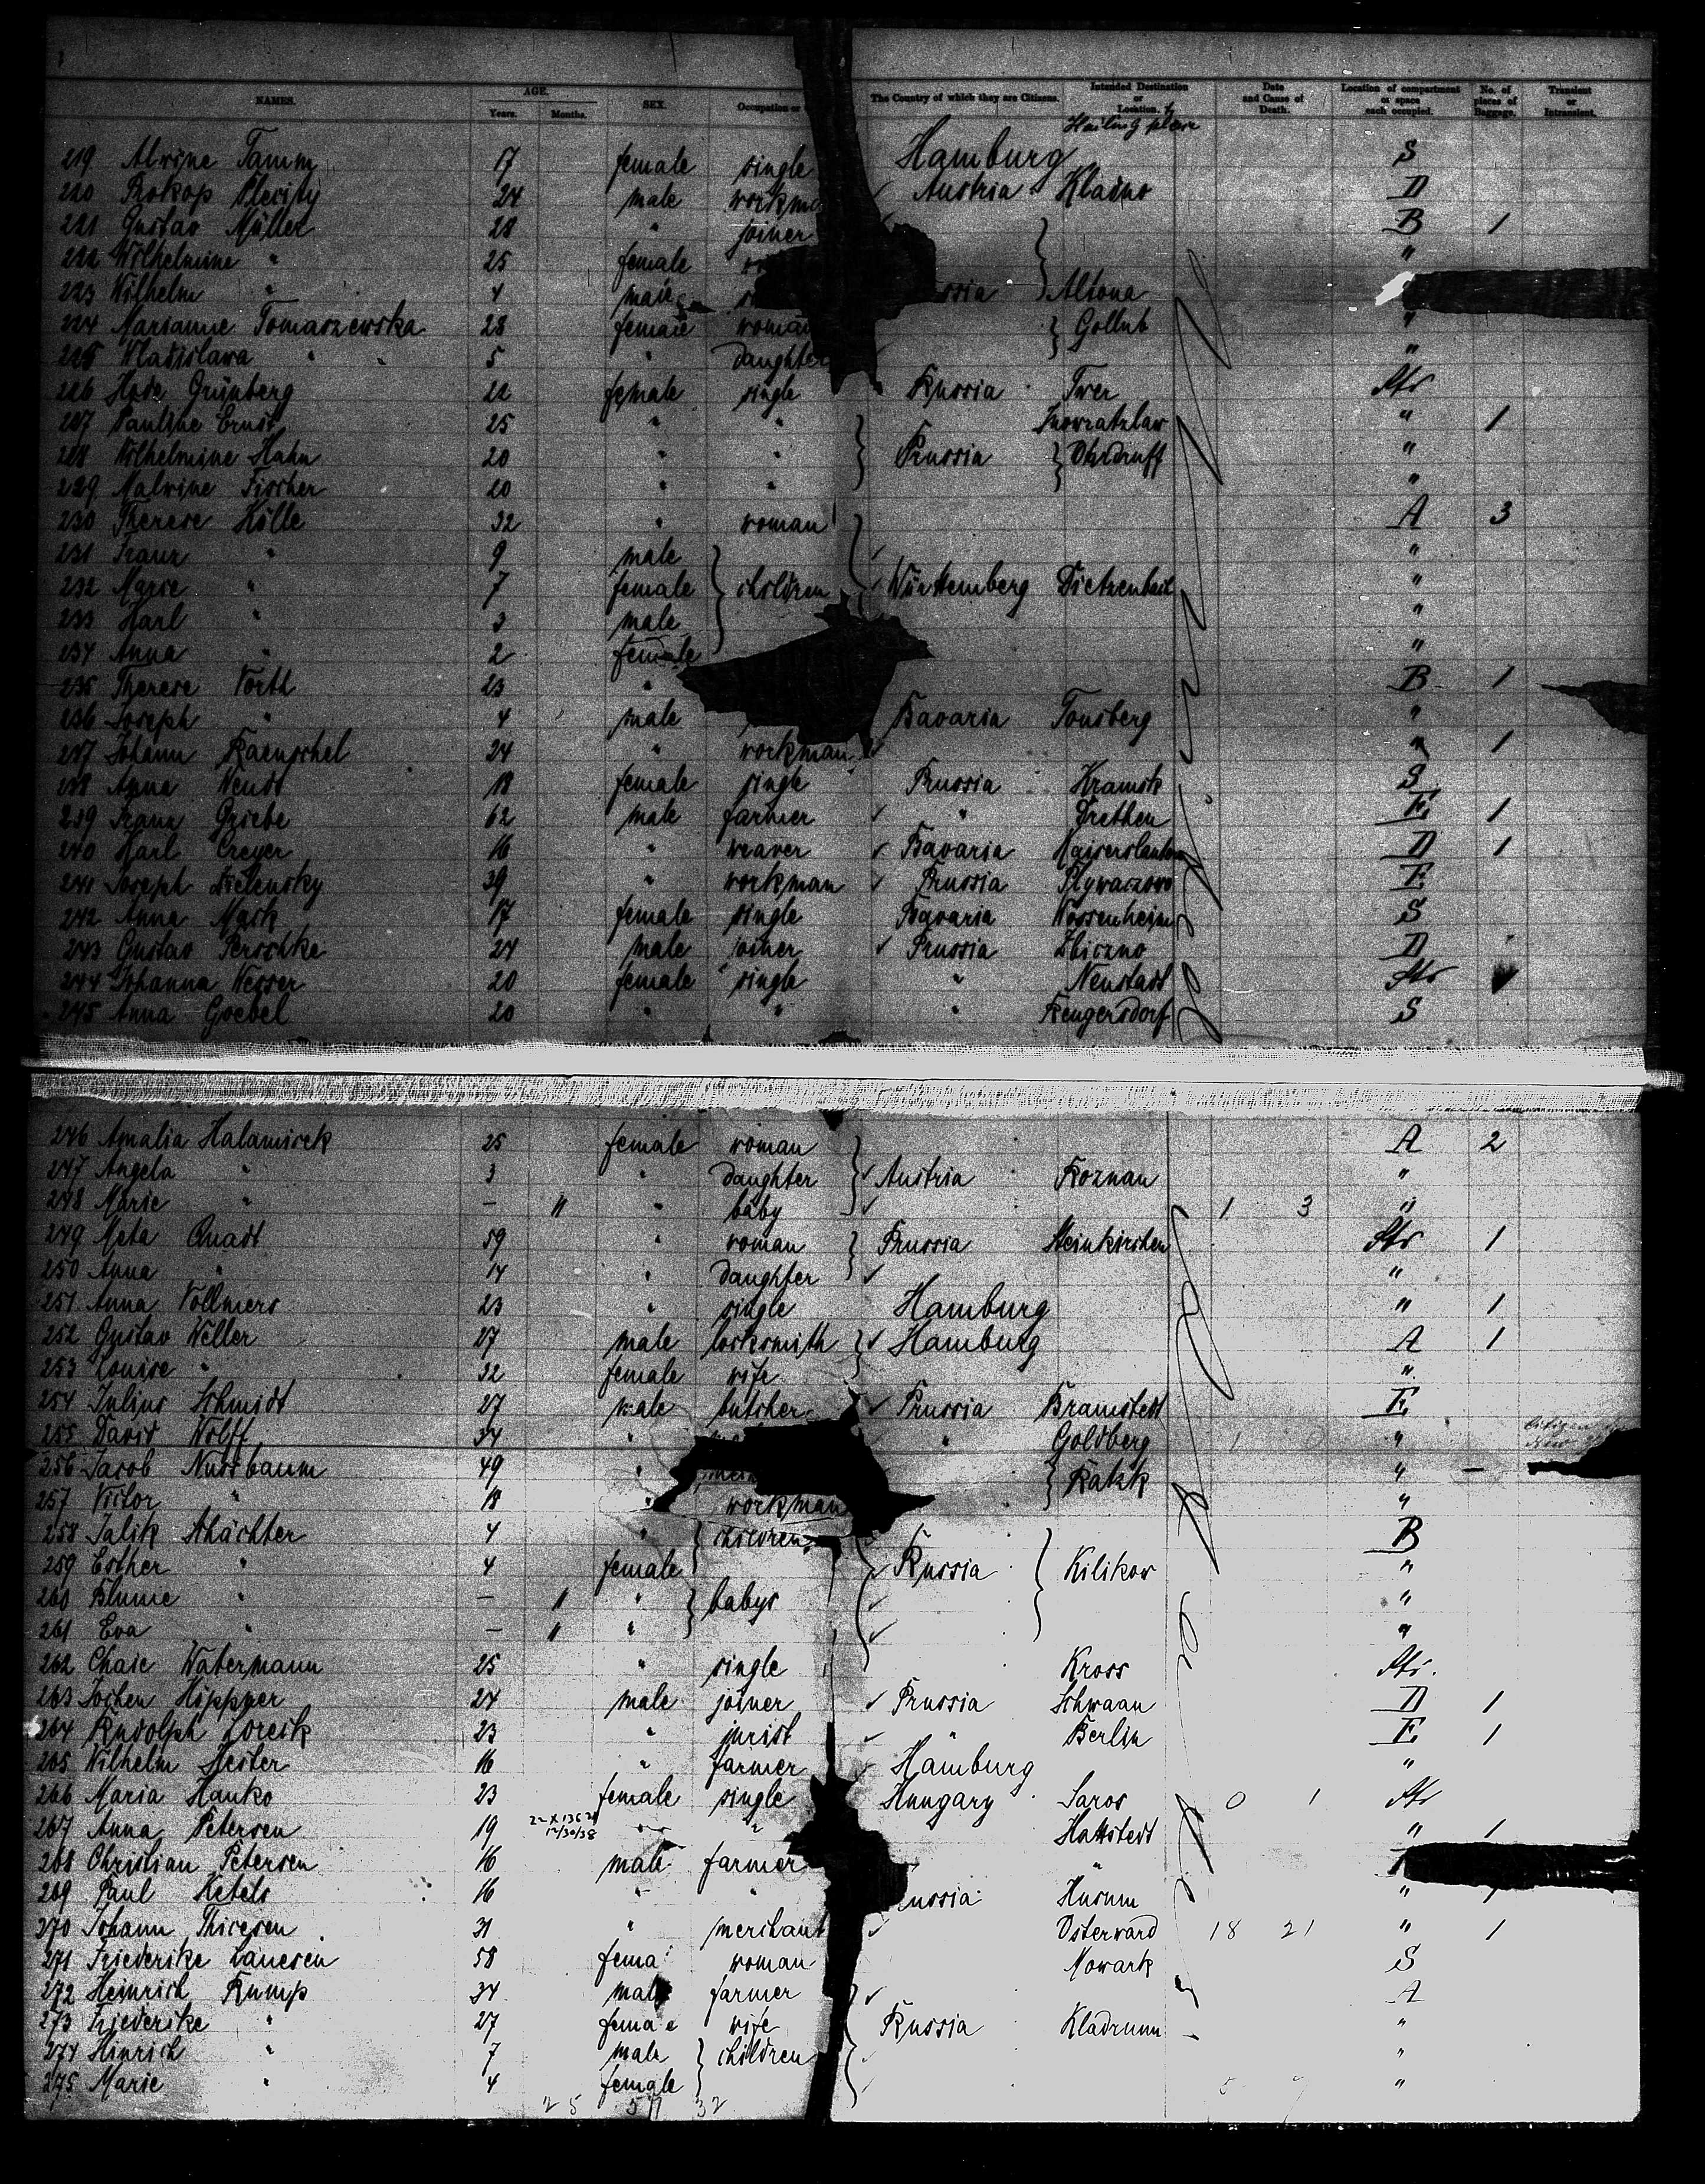 NAMES. AGE. Years. Months. SEX. Occupation or The Country of which they are Citizens. Intended Destination or Location. Date and Cause of Death. Location of compartment or space each occupied. No. of pieces of Baggage. Transient or Intransient.
Hailing place
219 Alvine Tamm 17 female single Hamburg S
220 Prokop 24 male Austria D
221 Gustav Müller 28 " joiner B 1
222 Wilhelmine " 25 female "
223 Wilhelm " 4 male Altona
224 Marianne Tomaszewska 28 female woman Gollub "
225 Wladislawa " 5 " daughter "
226 Grünberg 22 female single Russia Twer Str
227 Pauline Ernst 25 " " Inowratzlaw " 1
228 Wilhelmine Hahn 20 " " Prussia Ohrdruff "
229 Malwine Fischer 20 " " "
230 Therese Hölle 32 " woman A 3
231 Franz " 9 male "
232 Marie " 7 female children Würtemberg "
233 Karl " 3 male "
234 Anna " 2 female "
235 Therese 23 " B 1
236 Joseph " 4 male Bavaria "
237 Johann Kaenschel 24 " workman " 1
238 Anna Wendt 18 female single Prussia Kramsk S
239 Franz Griebe 62 male farmer " Drethen E 1
240 Karl Creyer 16 " weaver Bavaria D 1
241 Joseph Zielensky 39 " workman Prussia Plywaczowo E
242 Anna Mark 17 female single Bavaria S
243 Gustav Perschke 24 male joiner Prussia Zbiczno D
244 Johanna Wesser 20 female single " Neustadt Str
245 Anna Goebel 20 " " " Rengersdorf S
246 Amalia Halamicek 25 female woman A 2
247 Angela " 3 " daughter Austria Roznau "
248 Marie " — 11 " baby 1 3 "
249 Meta Quadt 59 " woman Prussia Steinkirchen Str 1
250 Anna " 14 " daughter "
251 Anna Vollmers 23 " single Hamburg " 1
252 Gustav Weller 27 male locksmith Hamburg A 1
253 Louise " 32 female wife "
254 Julius Schmidt 27 male butcher Prussia Bramstedt E
255 David Wolff 34 " " Goldberg "
256 Jacob Nussbaum 49 " "
257 Victor " 18 workman "
258 Schächter 4 " children B
259 Esther " 4 female Russia Kilikow "
260 Blume " — 11 " babys "
261 Eva " — 11 " "
262 Chaie Watermann 25 " single Kross Str.
263 Jochen 24 male joiner Prussia Schwaan D 1
264 Rudolph 23 " jurist " Berlin E 1
265 Wilhelm 16 " farmer Hamburg "
266 Maria Hanko 23 female single Hungary Saros 0 1 Str
267 Anna Petersen 19 12/30/38 " Hattstedt " 1
268 Christian Petersen 16 male farmer "
269 Paul Ketels 16 " " Husum "
270 Johann Thiesen 31 " merchant 18 21 " 1
271 Friederike 58 woman Nowark S
272 Heinrich Rump 34 male farmer A
273 Friederike " 27 wife Russia Kladrum "
274 Hinrich " 7 male children "
275 Marie " 4 female "